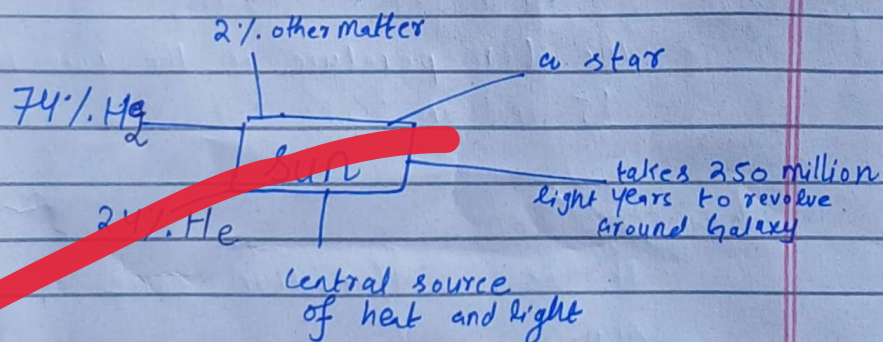 2%. other matter
a star
74%. H2
Sun
takes 250 million
light years to revolve
around Galaxy
24%. He
Central source
of heat and light